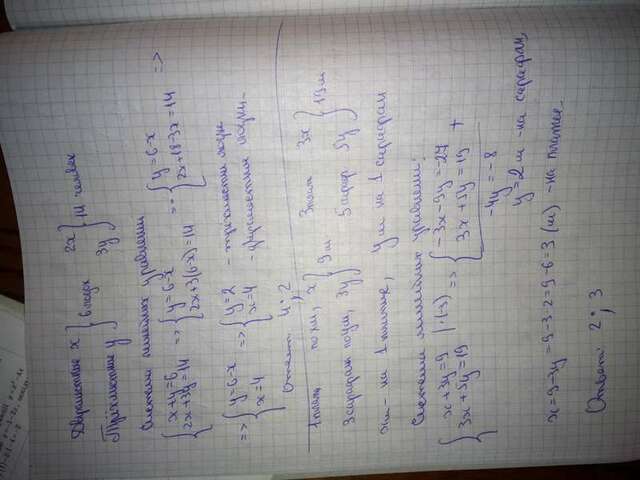 Двухместные x } 6 лодок 2x } 14 человек
Трёхместные y } 3y }
Система линейных уравнений
{ x+y=6 => { y=6-x => { y=6-x =>
{ 2x+3y=14 { 2x+3(6-x)=14 { 2x+18-3x=14
=> { y=6-x => { y=2 - трёхместных лодки
{ x=4 { x=4 - двухместных лодки
Ответ: 4; 2
1 плать по x м, x } 9 м 3 плат 3x } 19 м
3 сарафан по y м, 3y } 5 сараф 5y }
x м - на 1 платье, y м на 1 сарафан
Система линейных уравнений:
{ x+3y=9 |·(-3) => { -3x-9y=-27 +
{ 3x+5y=19 { 3x+5y=19
-4y=-8
y=2 м - на сарафан,
x=9-3y=9-3·2=9-6=3 (м) - на платье
Ответ: 2; 3